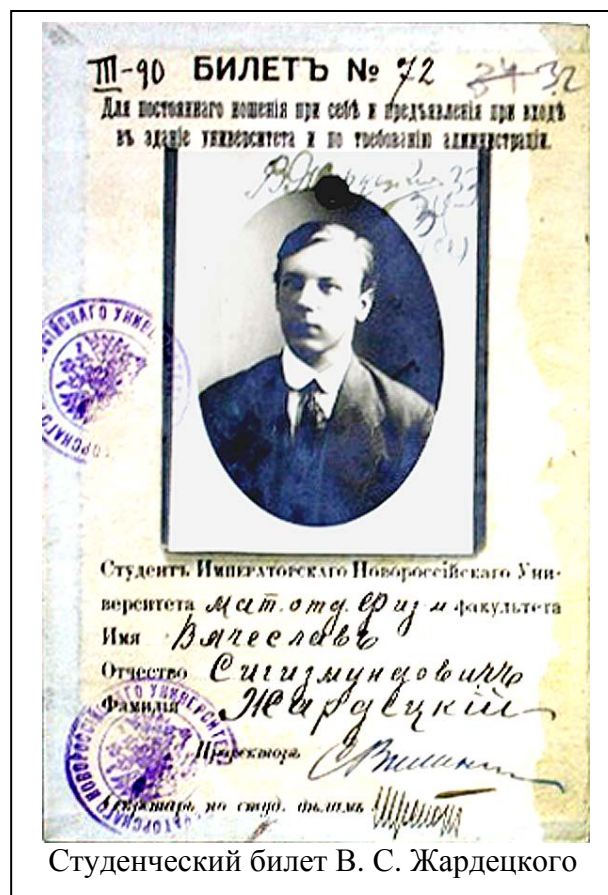 III-90 БИЛЕТЪ № 72 34-32
Для постояннаго ношенія при себѣ и предъявленія при входѣ
въ зданіе университета и по требованію администраціи.
Студентъ Императорскаго Новороссійскаго Уни-
верситета мат. отд. физ м факультета
Имя Вячеславъ
Отчество Сигизмундовичъ
Фамилія Жардецкій
Проректоръ
Секретарь по студ. дѣламъ
Студенческий билет В. С. Жардецкого